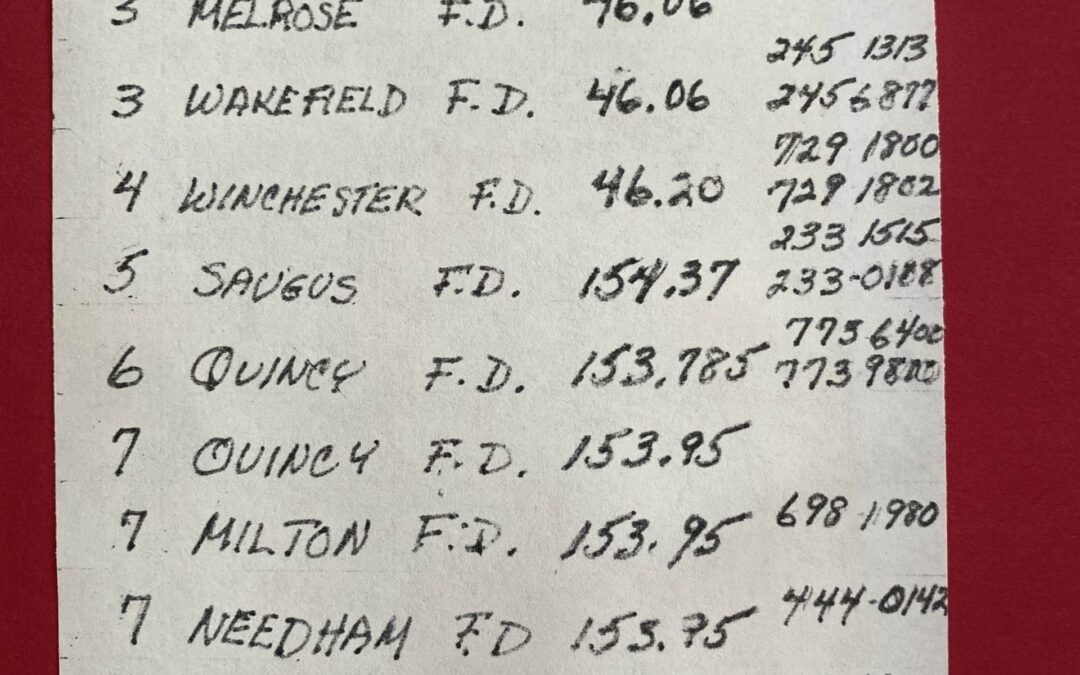 3 MELROSE F.D. 46.06
245 1313
3 WAKEFIELD F.D. 46.06 245 6877
729 1800
4 WINCHESTER F.D. 46.20 729 1802
233 1515
5 SAUGUS F.D. 154.37 233-0188
773 6400
6 QUINCY F.D. 153.785 773 9800
7 QUINCY F.D. 153.95
698 1980
7 MILTON F.D. 153.95
444-0142
7 NEEDHAM F.D 153.75